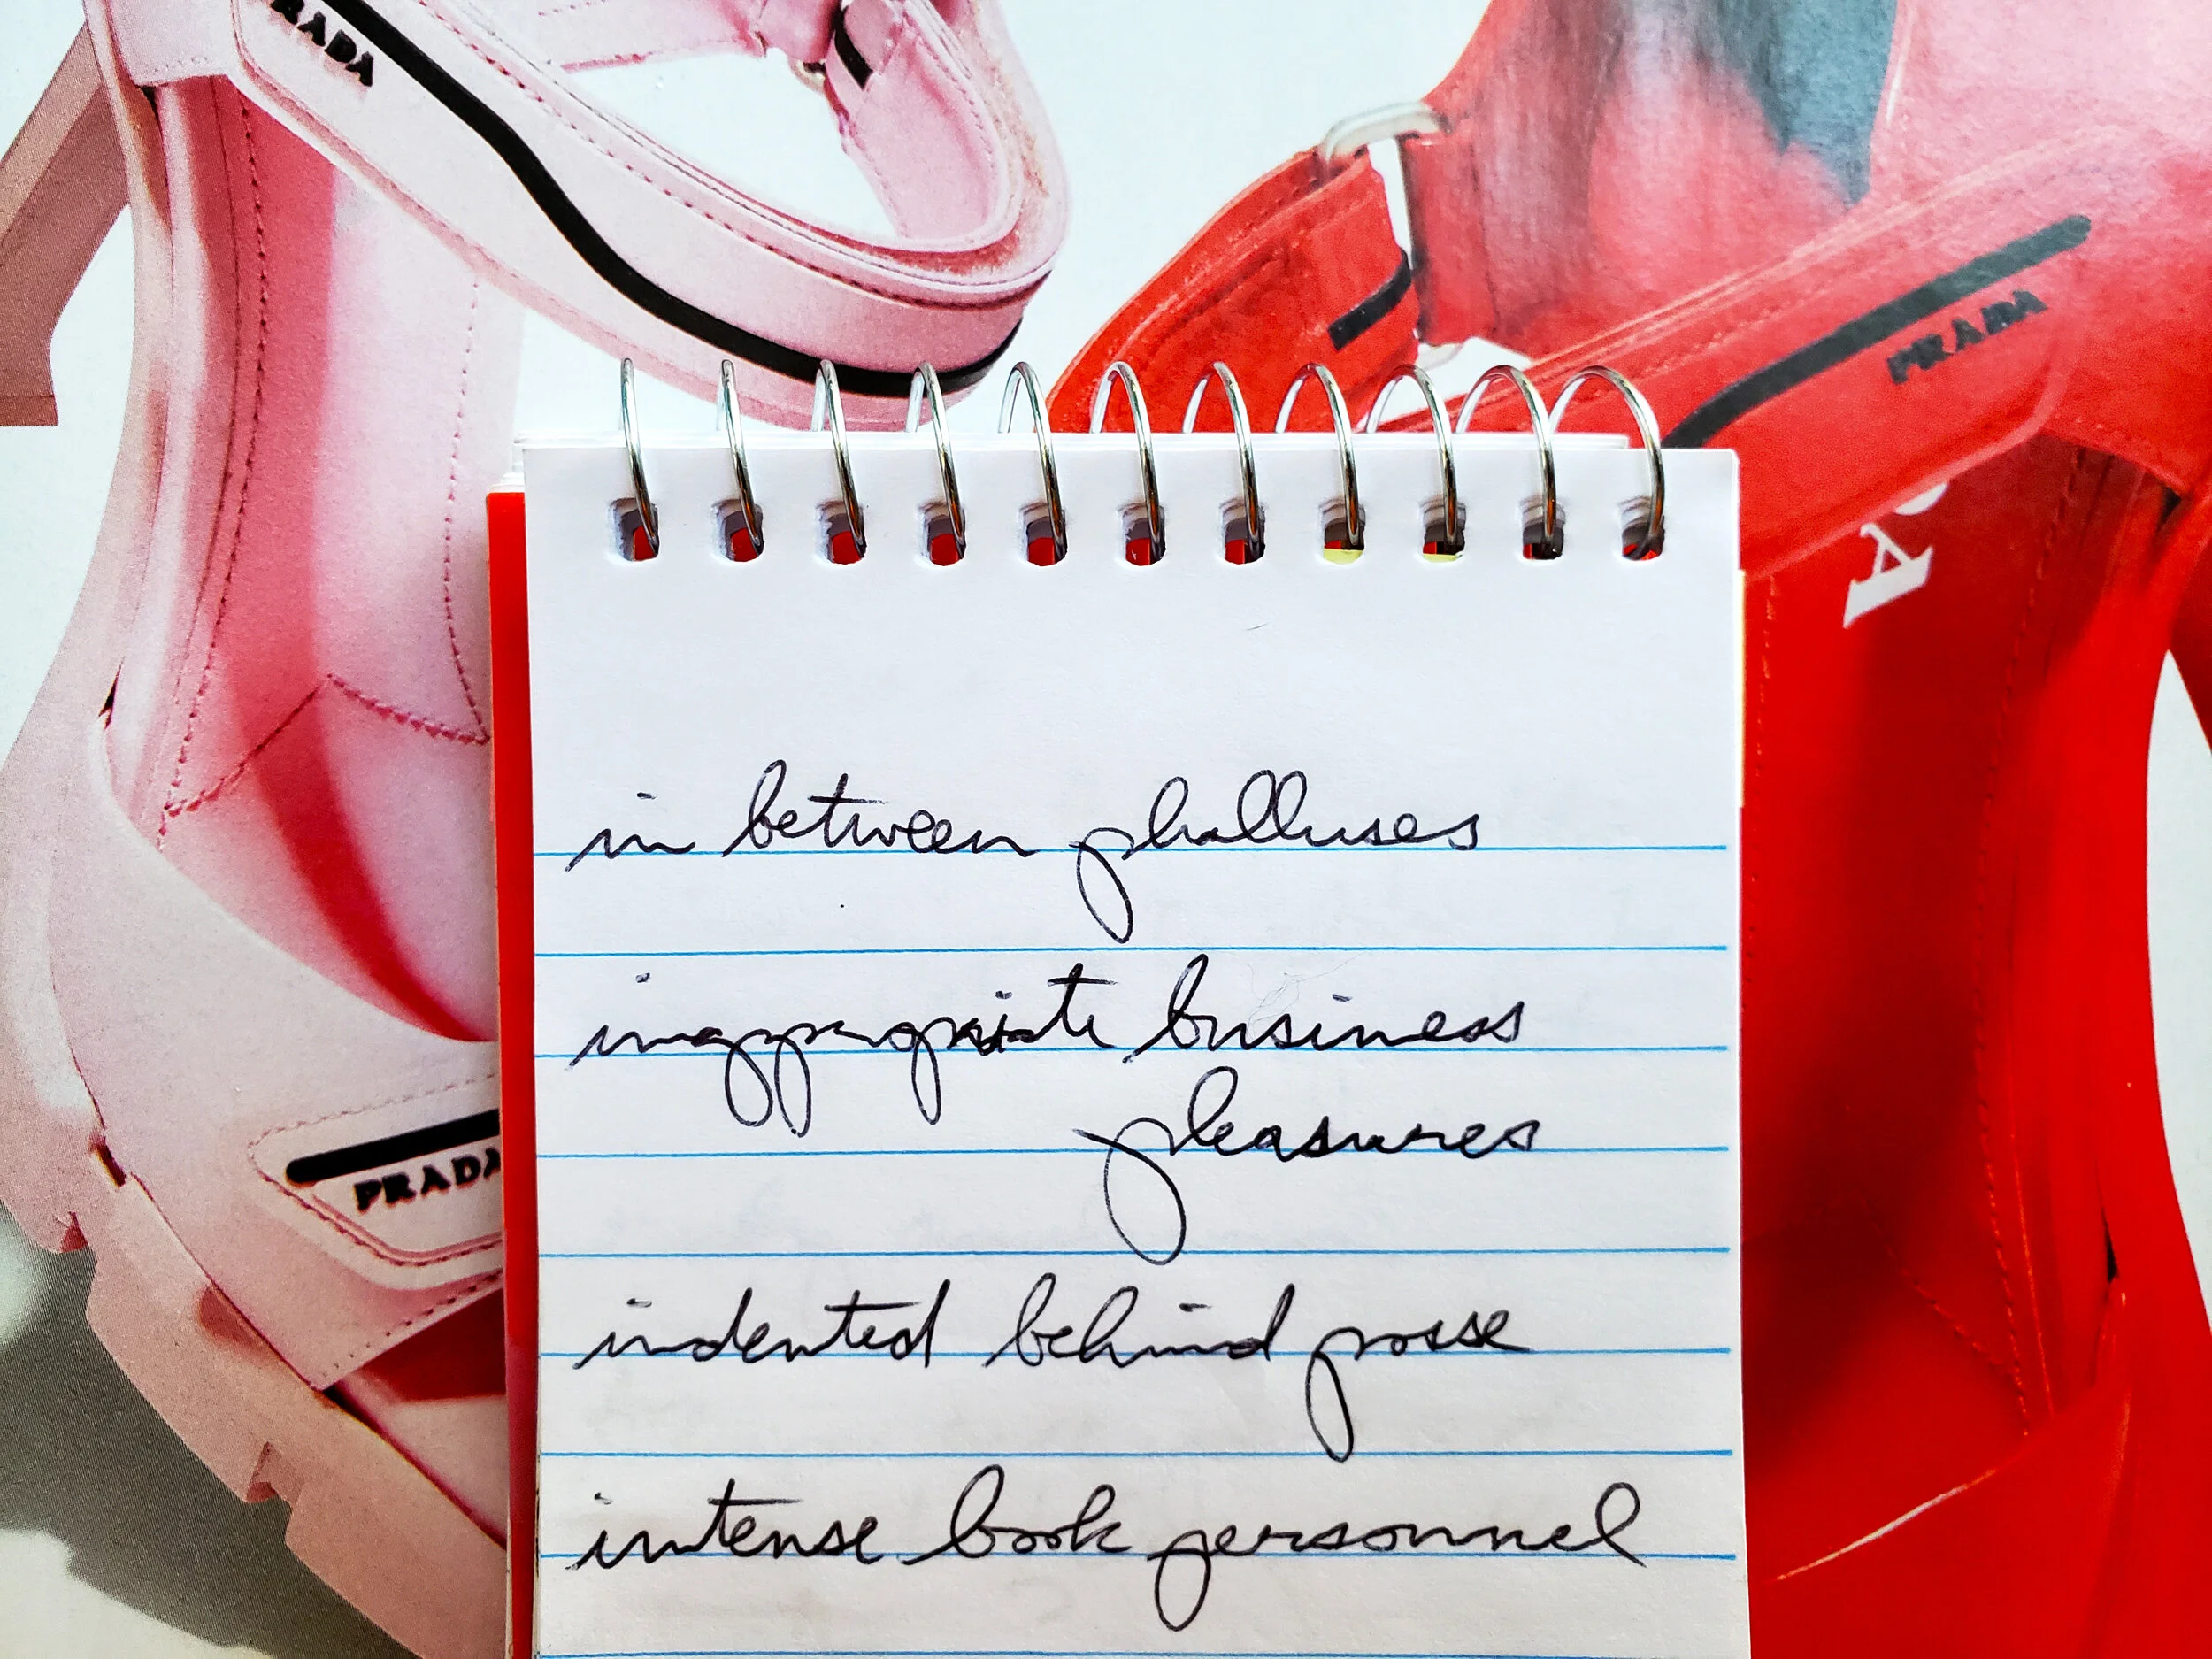 RADA
PRADA
A
in between phalluses
inappropriate business
pleasures
PRADA
indented behind posse
intense book personnel